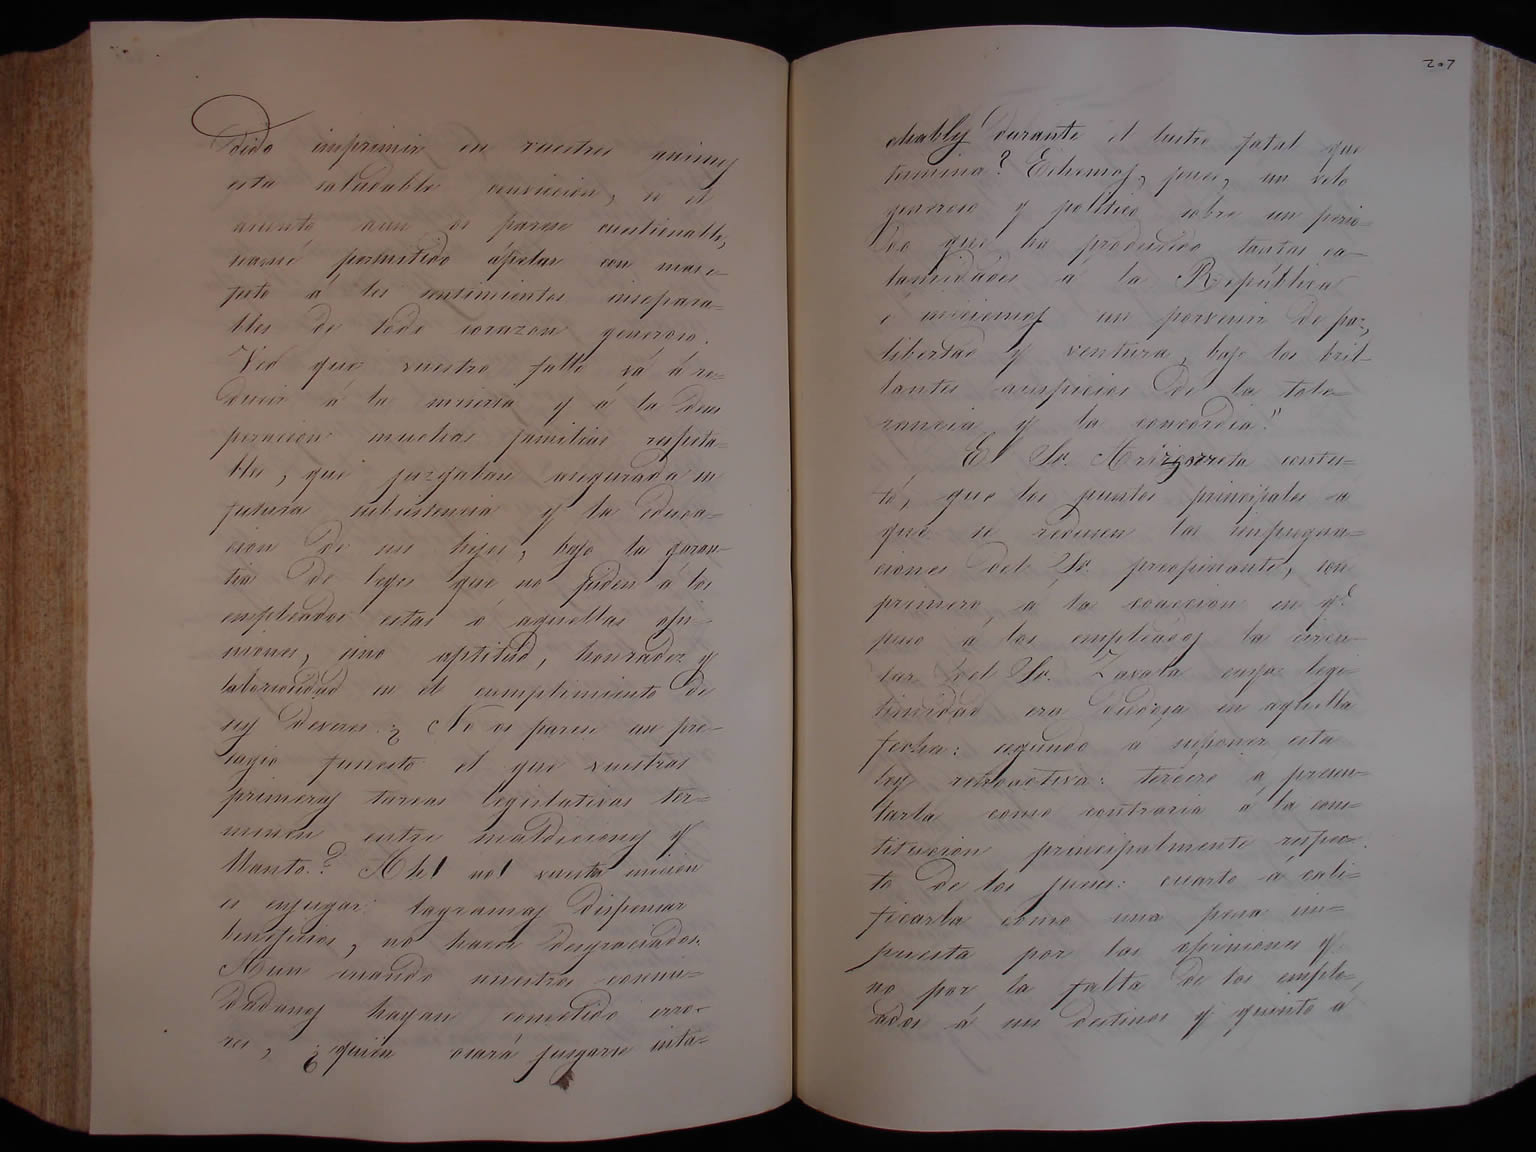 dido imprimir en vuestros animos
esta saludable conviccion, si el
asunto aun os parece cuestionable,
seame permitido ápelar con mani=
festo á los sentimientos insepara=
bles de todo corazon generoso.
Ved que vuestro fallo vá á re=
ducir á la miseria y á la deses
peracion muchas familias respeta=
bles, que juzgaban asegurada su
futura subsistencia y la educa=
cion de sus hijos, bajo la garan=
tia de leyes que no piden á los
empleados estas ó aquellas opi=
niones, sino aptitud, honradez y
laboriosidad en el cumplimiento de
sus deveres. ¿No os parece un pre=
sagio funesto el que vuestras
primeras tareas legislativas ter=
minen entre maldiciones y
llanto? Ah! no! vuestra mision
es enjugar lagrimas, dispensar
beneficios, no hacer desgraciados.
Aun cuando nuestros conciu=
dadanos hayan cometido erro=
res, ¿quien osará juzgarse inta=
207
chables durante el lustro fatal que
termina? Echemos, pues, un velo
generoso y politico sobre un perio=
do que ha producido tantas ca=
lamidades á la República
e iniciemos un porvenir de paz,
libertad y ventura, bajo los bril=
lantes auspicios de la tole=
rancia y la concordia."
El Sr. Arizcorreta contes=
tó, que los puntos principales a
que se reducen las impugna=
ciones del Sr. preopinante, son
primero á la coaccion en q.e
puso á los empleados la circu=
lar del Sr. Zavala cuya legi=
timidad era dudosa en aquella
fecha: segundo á suponer esta
ley retroactiva: tercero á presen=
tarla como contraria á la cons=
titucion principalmente respec=
to de los jueces: cuarto á cali=
ficarla como una pena im=
puesta por las opiniones y
no por la falta de los emple=
ados á sus destinos y quinto á